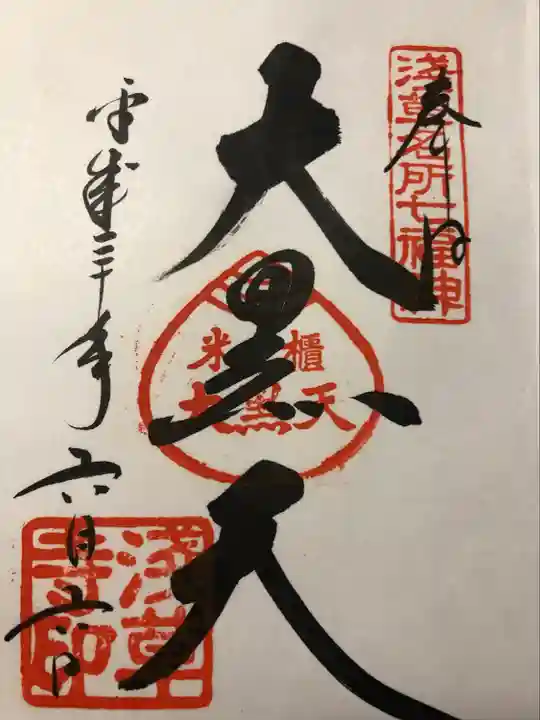 奉拝
淺草名所七福神
大黒天
米櫃
大黒天
平成三十年六月日
淺草寺印